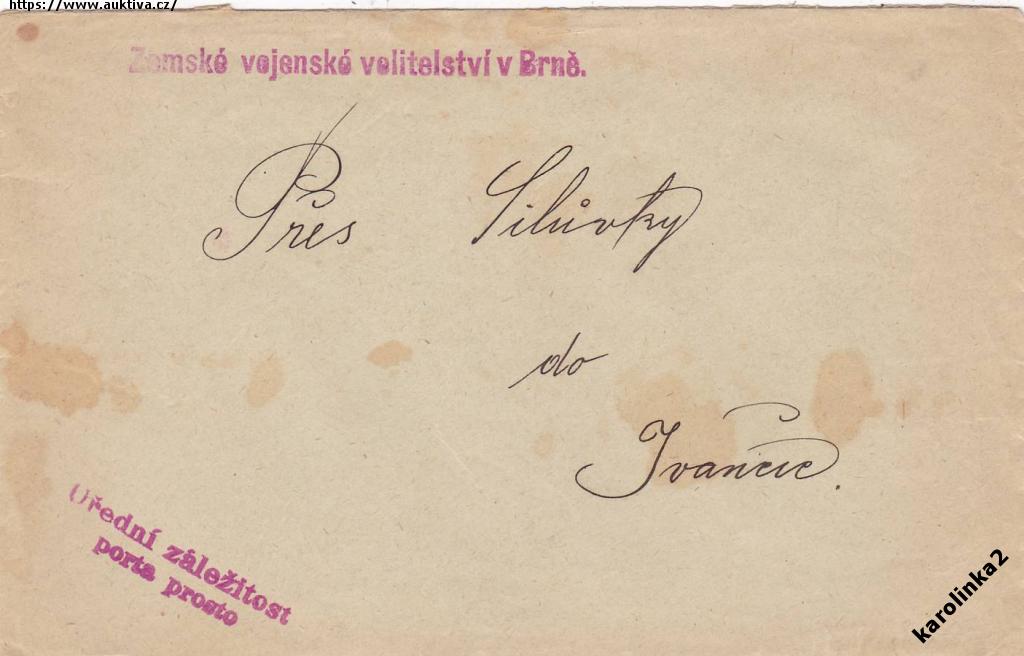 https://www.auktiva.cz/
Zemské vojenské velitelství v Brně.
Přes Silůvky
do
Ivančic.
Úřední záležitost
porta prosto
karolinka2